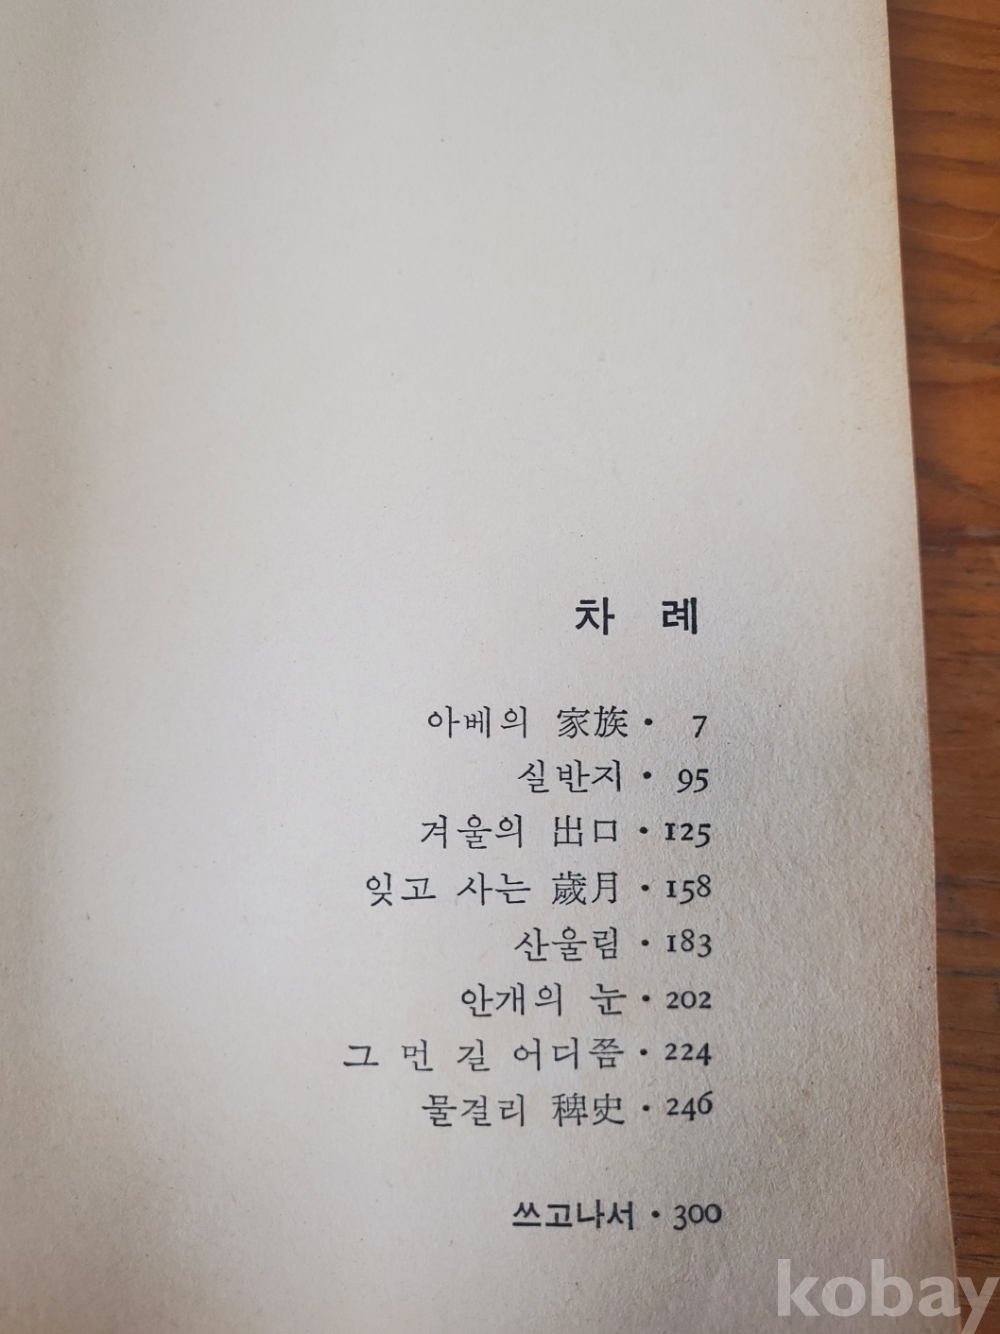 차 례
아베의 家族 · 7
실반지 · 95
겨울의 出口 · 125
잊고 사는 歲月 · 158
산울림 · 183
안개의 눈 · 202
그 먼 길 어디쯤 · 224
물걸리 稗史 · 246
쓰고나서 · 300
kobay